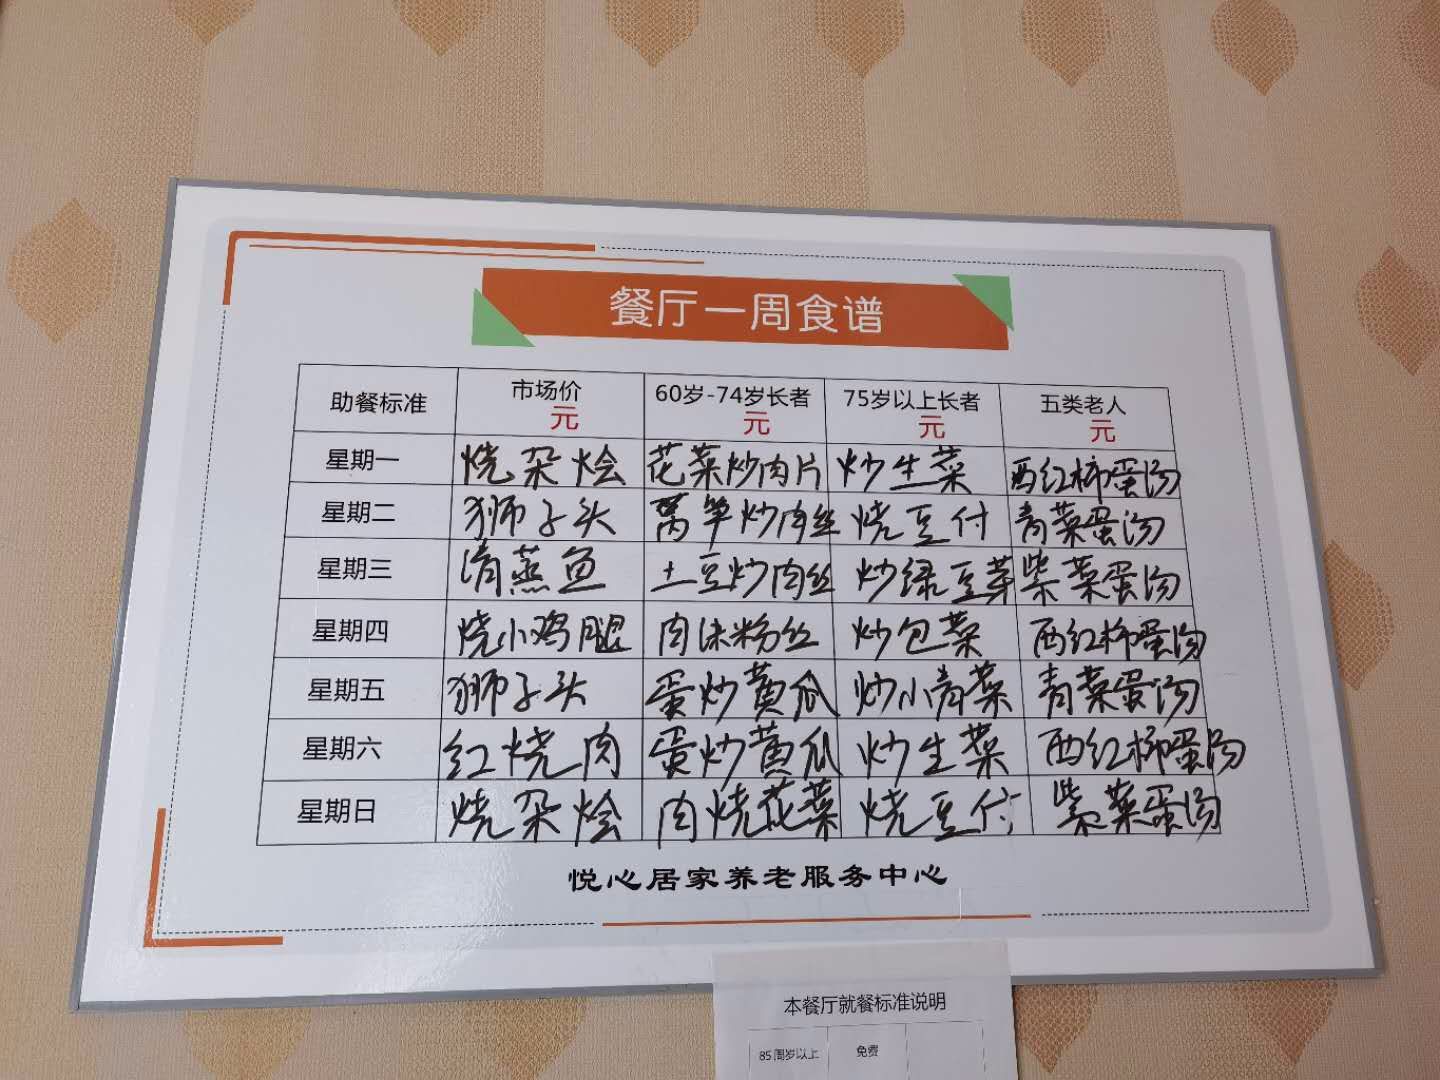 餐厅一周食谱
助餐标准 市场价 元 60岁-74岁长者 元 75岁以上长者 元 五类老人 元
星期一 烧杂烩 花菜炒肉片 炒生菜 西红柿蛋汤
星期二 狮子头 莴笋炒肉丝 烧豆付 青菜蛋汤
星期三 清蒸鱼 土豆炒肉丝 炒绿豆芽 紫菜蛋汤
星期四 烧小鸡腿 肉沫粉丝 炒包菜 西红柿蛋汤
星期五 狮子头 蛋炒黄瓜 炒小青菜 青菜蛋汤
星期六 红烧肉 蛋炒黄瓜 炒生菜 西红柿蛋汤
星期日 烧杂烩 肉烧花菜 烧豆付 紫菜蛋汤
悦心居家养老服务中心
本餐厅就餐标准说明
85周岁以上 免费